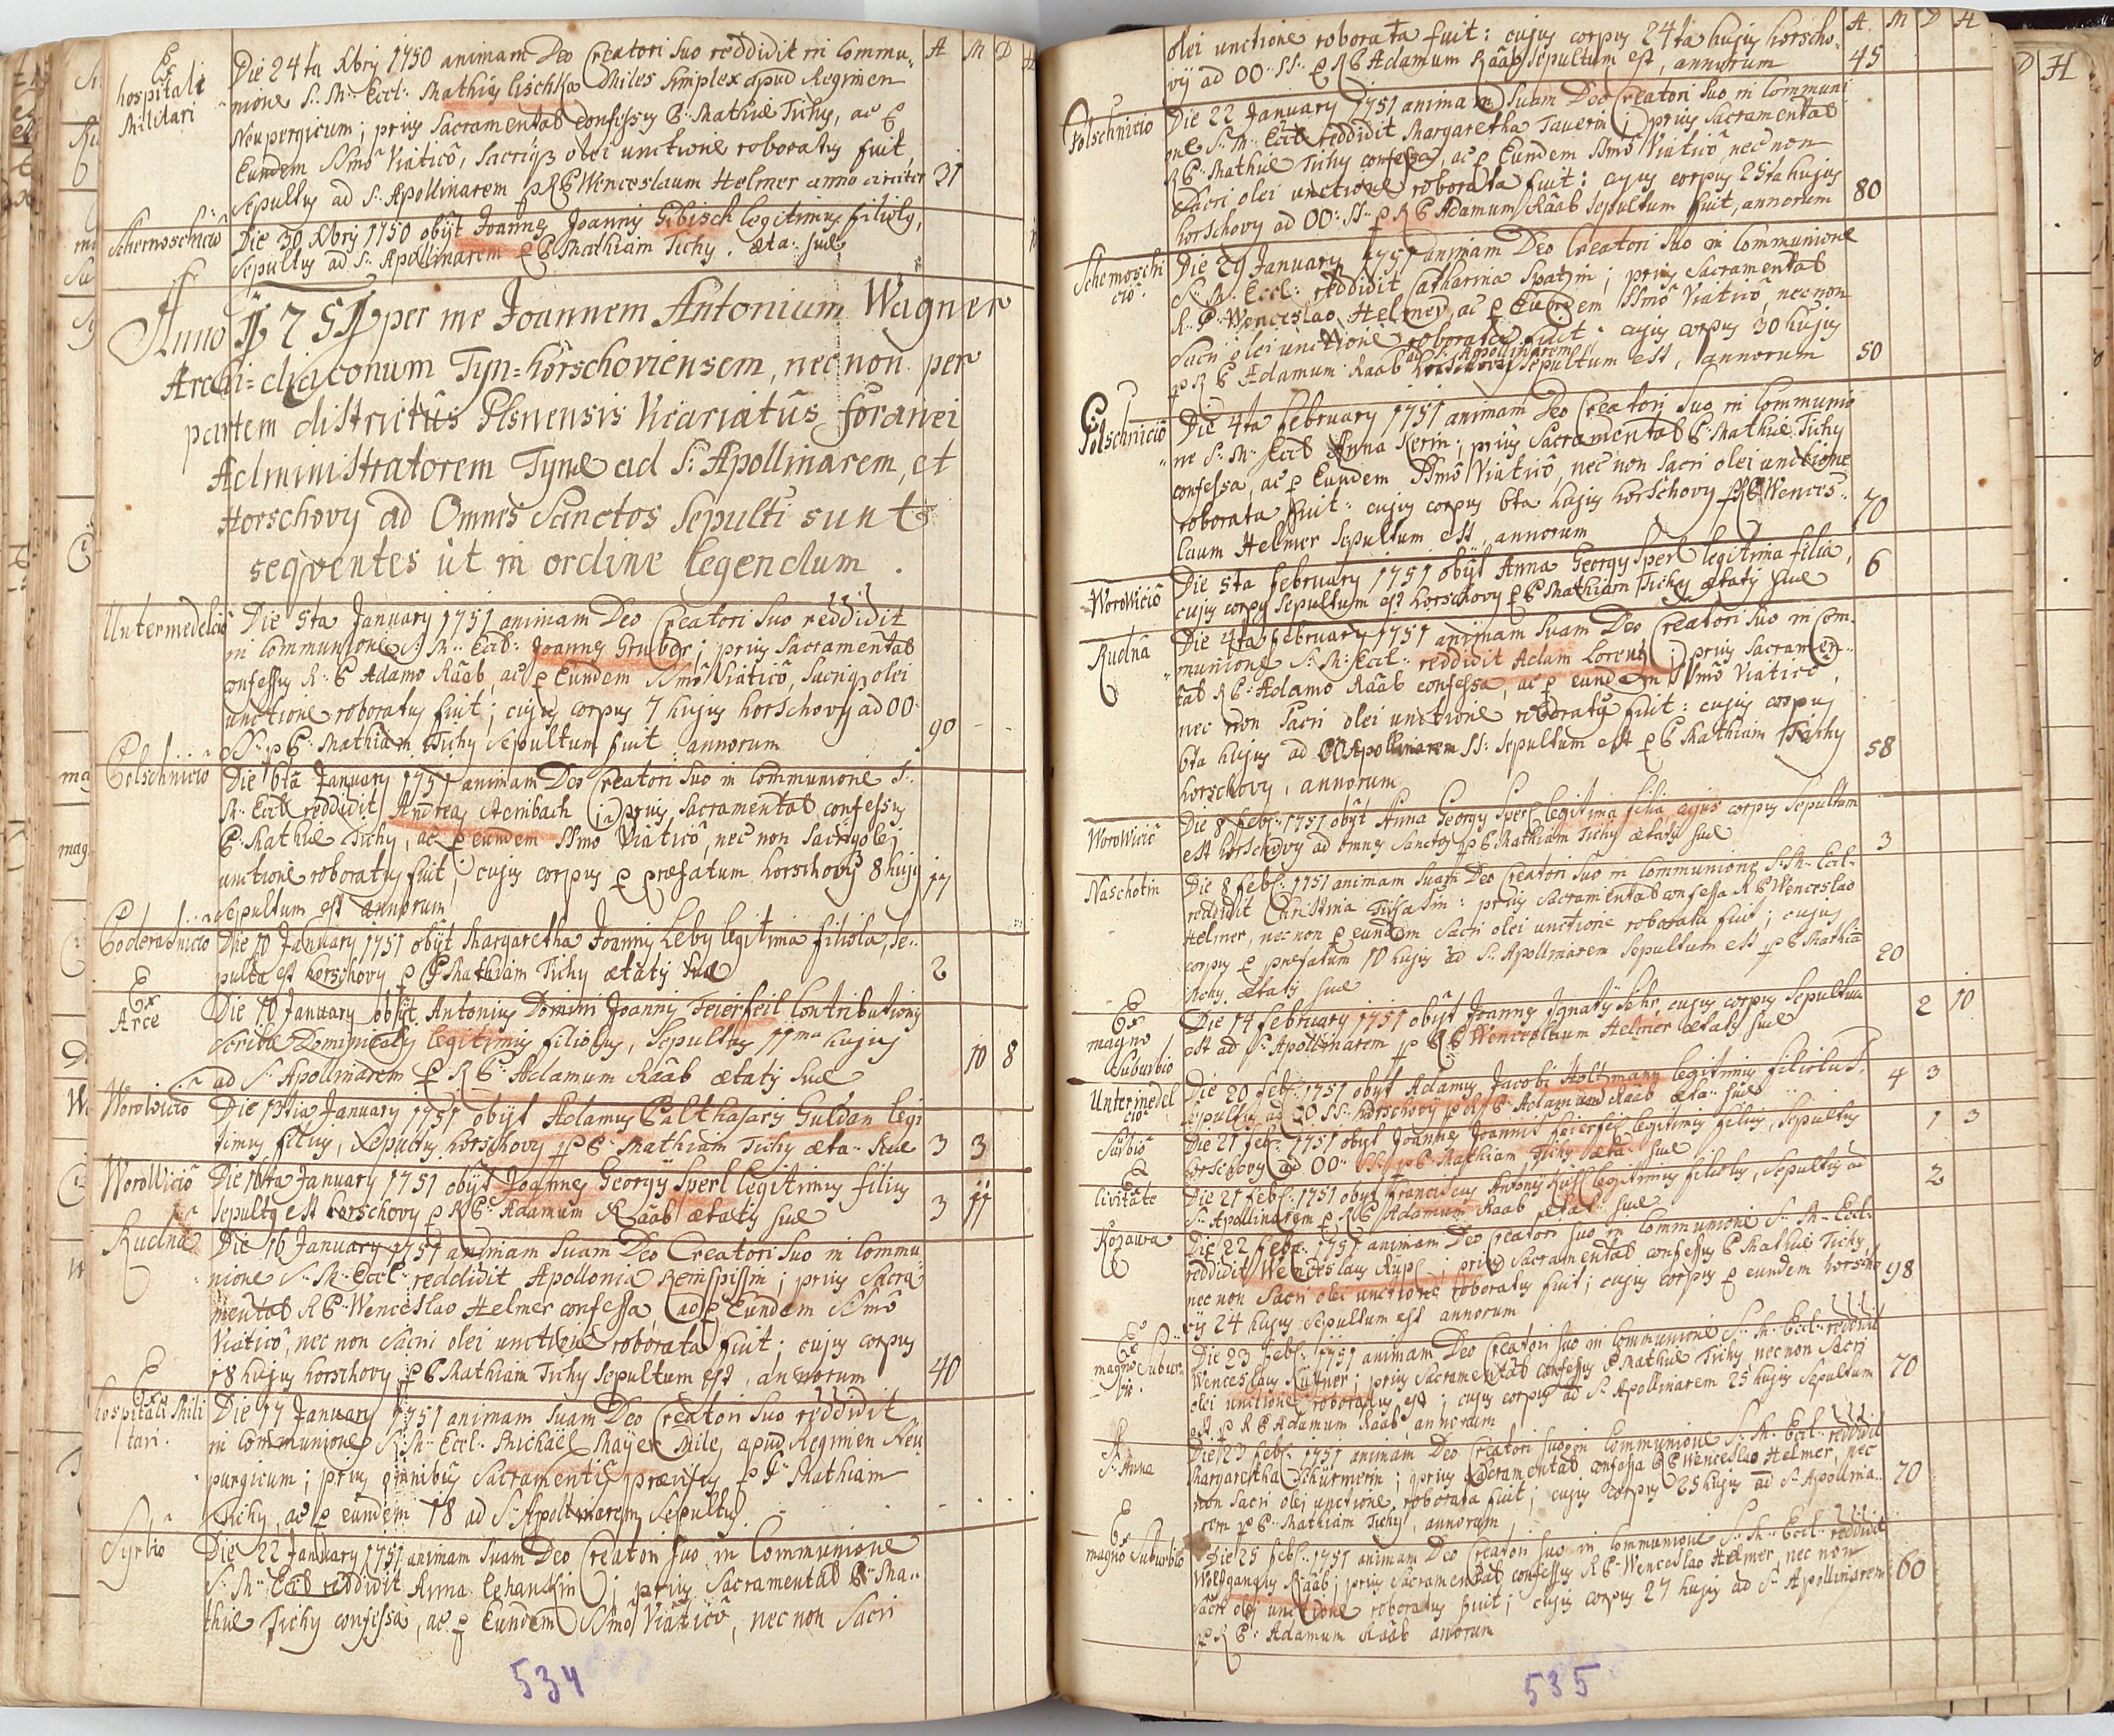 A M D H
Ex
hospitali
Militari
Die 24ta Xbry 1750 animam Deo Creatori Suo reddidit in Commu„
nione S: M: Eccl: Mathias Lischka Miles simplex apud Regimen
Neupergicum; prius Sacramentalr confessus P: Mathiæ Tichy, ac p
Eundem SSmo Viatico, Sacriqз olei unctione roboratus fuit,
Sepultus ad S: Apollinarem p R P Wenceslaum Helmer anno circiter 31
Schernoschicio
Die 30 Xbry 1750 obijt Joannes Joannis Gibisch legitimus filiolus,
Sepultus ad S: Apollinarem p P Mathiam Tichy. æta: suæ
Anno 1751 per me Joannem Antonium Wagner
Archi=diaconum Tyn=horschoviensem, nec non per
partem districtus Plsnensis Vicariatûs foranei
Administratorem Tynæ ad S: Apollinarem, et
Horschovy ad Omnes Sanctos Sepulti sunt
seqventes ut in ordine legendum.
Untermedelcio
Die 5ta January 1751 animam Deo Creatori Suo reddidit
in Communione S: M: Eccl: Joannes Gruber; prius Sacramentalr
confessus R: P Adamo Raab, ac p Eundem SSmo Viatico, Sacriqз olei
unctione roboratus fuit; cujus corpus 7 hujus horschovy ad OO:
SS: p P: Mathiam Tichy Sepultum fuit annorum 90
Polschnicio
Die 6ta January 1751 animam Deo Creatori Suo in Communione S:
M: Eccl reddidit Andreas Aembach; prius Sacramentalr confessus
P: Mathiæ Tichy, ac p eundem SSmo Viatico, nec non Sacriqз olej
unctione roboratus fuit; cujus corpus p præfatum horschovy 8 hujus
Sepultum est annorum 17
Podorasnicio
Die 10 January 1751 obijt Margaretha Joannis Leby legitima filiola, Se„
pulta est horschovy p P Mathiam Tichy ætatis suæ 2
Ex
Arce
Die 10 January obijt Antonius Domini Joannis Feierfeil Contributionis
Scribæ Dominicalis legitimus filiolus, Sepultus 11ma hujus
ad S: Apollinarem p R P: Adamum Raab ætatis suæ 10 8
Worowicio
Die 13tia January 1751 obijt Adamus Balthasaris Guldan legi
timus filius, Sepultus horschovy p P: Mathiam Tichy æta: suæ 3 3
Worowicio
Die 16ta January 1751 obijt Joannes Georgy Sperl legitimus filius
Sepultq est horschovy p R P: Adamum Raab ætatis suæ 3 11
Rudna
Die 16 January 1751 animam Suam Deo Creatori Suo in Commu
nione S: M: Eccl: reddidit Apollonia Reinspissin; prius Sacra
mentalr R P: Wenceslao Helmer confessa, ac p Eundem SSmo
Viatico, nec non Sacri olei unctione roborata fuit; cujus corpus
18 hujus horschovy p P Mathiam Tichy Sepultum est, annorum 40
Ex
hospitali Mili
tari.
Die 17 January 1751 animam Suam Deo Creatori Suo reddidit
in Communione S: M: Eccl: Michaël Mayer Miles apud Regimen Neu
purgicum; prius omnibus Sacramentis prævisus p P: Mathiam
Tichy, ac p eundem 18 ad S: Apollinarem Sepultus.
Syrbio
Die 22 January 1751 animam Suam Deo Creatori Suo in Communione
S: M: Eccl reddidit Anna Lehanckin; prius Sacramentalr P: Ma„
thiæ Tichy confessa, ac p Eundem SSmo Viatico, nec non Sacri
534
A M D H
olei unctione roborata fuit: cujus corpus 24ta hujus horscho„
vy ad OO: SS: p R P Adamum Raab Sepultum est, annorum 45
Polschnicio
Die 22 January 1751 animam Suam Deo Creatori Suo in Communi
one S: M: Eccl reddidit Margaretha Tauerin; prius Sacramentalr
R P: Mathiæ Tichy confessa, ac p Eundem SSmo Viatico, nec non
Sacri olei unctione roborata fuit: cujus corpus 25ta hujus
horschovy ad OO: SS: p R P Adamum Raab Sepultum fuit, annorum 80
Schernoschi
cio.
Die 29 January 1751 animam Deo Creatori Suo in Communione
S: M: Eccl: reddidit Catharina Spatzin; prius Sacramentalr
R: P: Wenceslao Helmer, ac p Eundem SSmo Viatico, nec non
Sacri olei unctione roborata fuit: cujus corpus 30 hujus
ad S: Apollinarem
p R P Adamum Raab horschovy Sepultum est, annorum 50
Polschnicio
Die 4ta February 1751 animam Deo Creatori Suo in Communio
ne S: M: Eccl Anna Kerin; prius Sacramentalr P: Mathiæ Tichy
confessa, ac p Eundem SSmo Viatico, nec non Sacri olei unctione
roborata fuit: cujus corpus 6ta hujus horschovy p R P Wences„
laum Helmer Sepultum est, annorum 70
Worowicio
Die 5ta February 1751 obijt Anna Georgy Sperl legitima filia,
cujus corpus Sepultum est horschovy p P Mathiam Tichy ætatis suæ 6
Rudna
Die 4ta February 1751 animam Suam Deo Creatori Suo in Com„
munione S: M: Eccl: reddidit Adam Lorentz; prius Sacramen„
talr R P: Adamo Raab confessa, ac p eundem SSmo Viatico,
nec non Sacri olei unctione roboratus fuit: cujus corpus
6ta hujus ad OO Apollinarem SS: Sepultum est p P Mathiam Tichy
horschovy, annorum 58
Worowicio
Die 8 Feb: 1751 obijt Anna Georgy Sperl legitima filia, cujus corpus Sepultum
est horschovy ad omnes Sanctos p P Mathiam Tichy ætatis suæ 3
Naschotin
Die 8 Feb: 1751 animam Suam Deo Creatori Suo in Communione S: M: Eccl:
reddidit Christina; prius Sacramentalr confessa R P Wenceslao
Helmer, nec non p eundem Sacri olei unctione roborata fuit; cujus
corpus p præfatum 10 hujus ad S: Apollinarem Sepultum est p P Mathia
Tichy ætatis suæ 20
Ex
magno
Suburbio
Die 14 February 1751 obijt Joannes Ignaty Sehr, cujus corpus Sepultum
est ad S: Apollinarem p R P Wenceslaum Helmer ætatis suæ 2 10
Untermedel
cio
Die 20 Feb: 1751 obijt Adamus Jacobi Holtzmann legitimus filiolus S:
epultus ad OO SS: horschovy p R P: Adamum Raab æta: suæ 4 3
Sürbio
Die 21 Feb: 1751 obijt Joannes Joannis Feierfeil legitimus filius, Sepultus
horschovy ad OO: SS: p P: Mathiam Tichy æta: suæ 1 3
Ex
Civitate
Die 21 Feb: 1751 obijt Franciscus Antony legitimus filiolus, Sepultus ad
S: Apollinarem p R P Adamum Raab ætat: suæ 2
Kozaura
Die 22 Feb: 1751 animam Deo Creatori Suo in Communione S: M: Eccl:
reddidit Wenceslaus; prius Sacramentalr confessus P Mathiæ Tichy,
nec non Sacri olei unctione roboratus fuit; cujus corpus p eundem horscho
vy 24 hujus Sepultum est annorum 98
Ex
magno Subur„
bio.
Die 23 Feb: 1751 animam Deo Creatori Suo in Communione S: M: Eccl: reddidit
Wenceslaus Küffner; prius Sacramentalr confessus P Mathiæ Tichy, nec non Sacri
olei unctione roboratus est; cujus corpus ad S: Apollinarem 25 hujus Sepultum
est p R P Adamum Raab, annorum 70
A
S: Anna
Die 23 Feb: 1751 animam Deo Creatori Suo in Communione S: M: Eccl: reddidit
Margaretha Schürmerin; prius Sacramentalr confessa R P Wenceslao Helmer, nec
non Sacri olei unctione roborata fuit; cujus corpus 25 hujus ad S: Apollina„
rem p P: Mathiam Tichy, annorum 70
Ex
magno Suburbio
Die 25 Feb: 1751 animam Deo Creatori Suo in Communione S: M: Eccl: reddidit
Wolfgangus Raab; prius Sacramentalr confessus R P: Wenceslao Helmer, nec non
Sacri olei unctione roboratus fuit; cujus corpus 27 hujus ad S: Apollinarem
p R P: Adamum Raab anorum 60
535